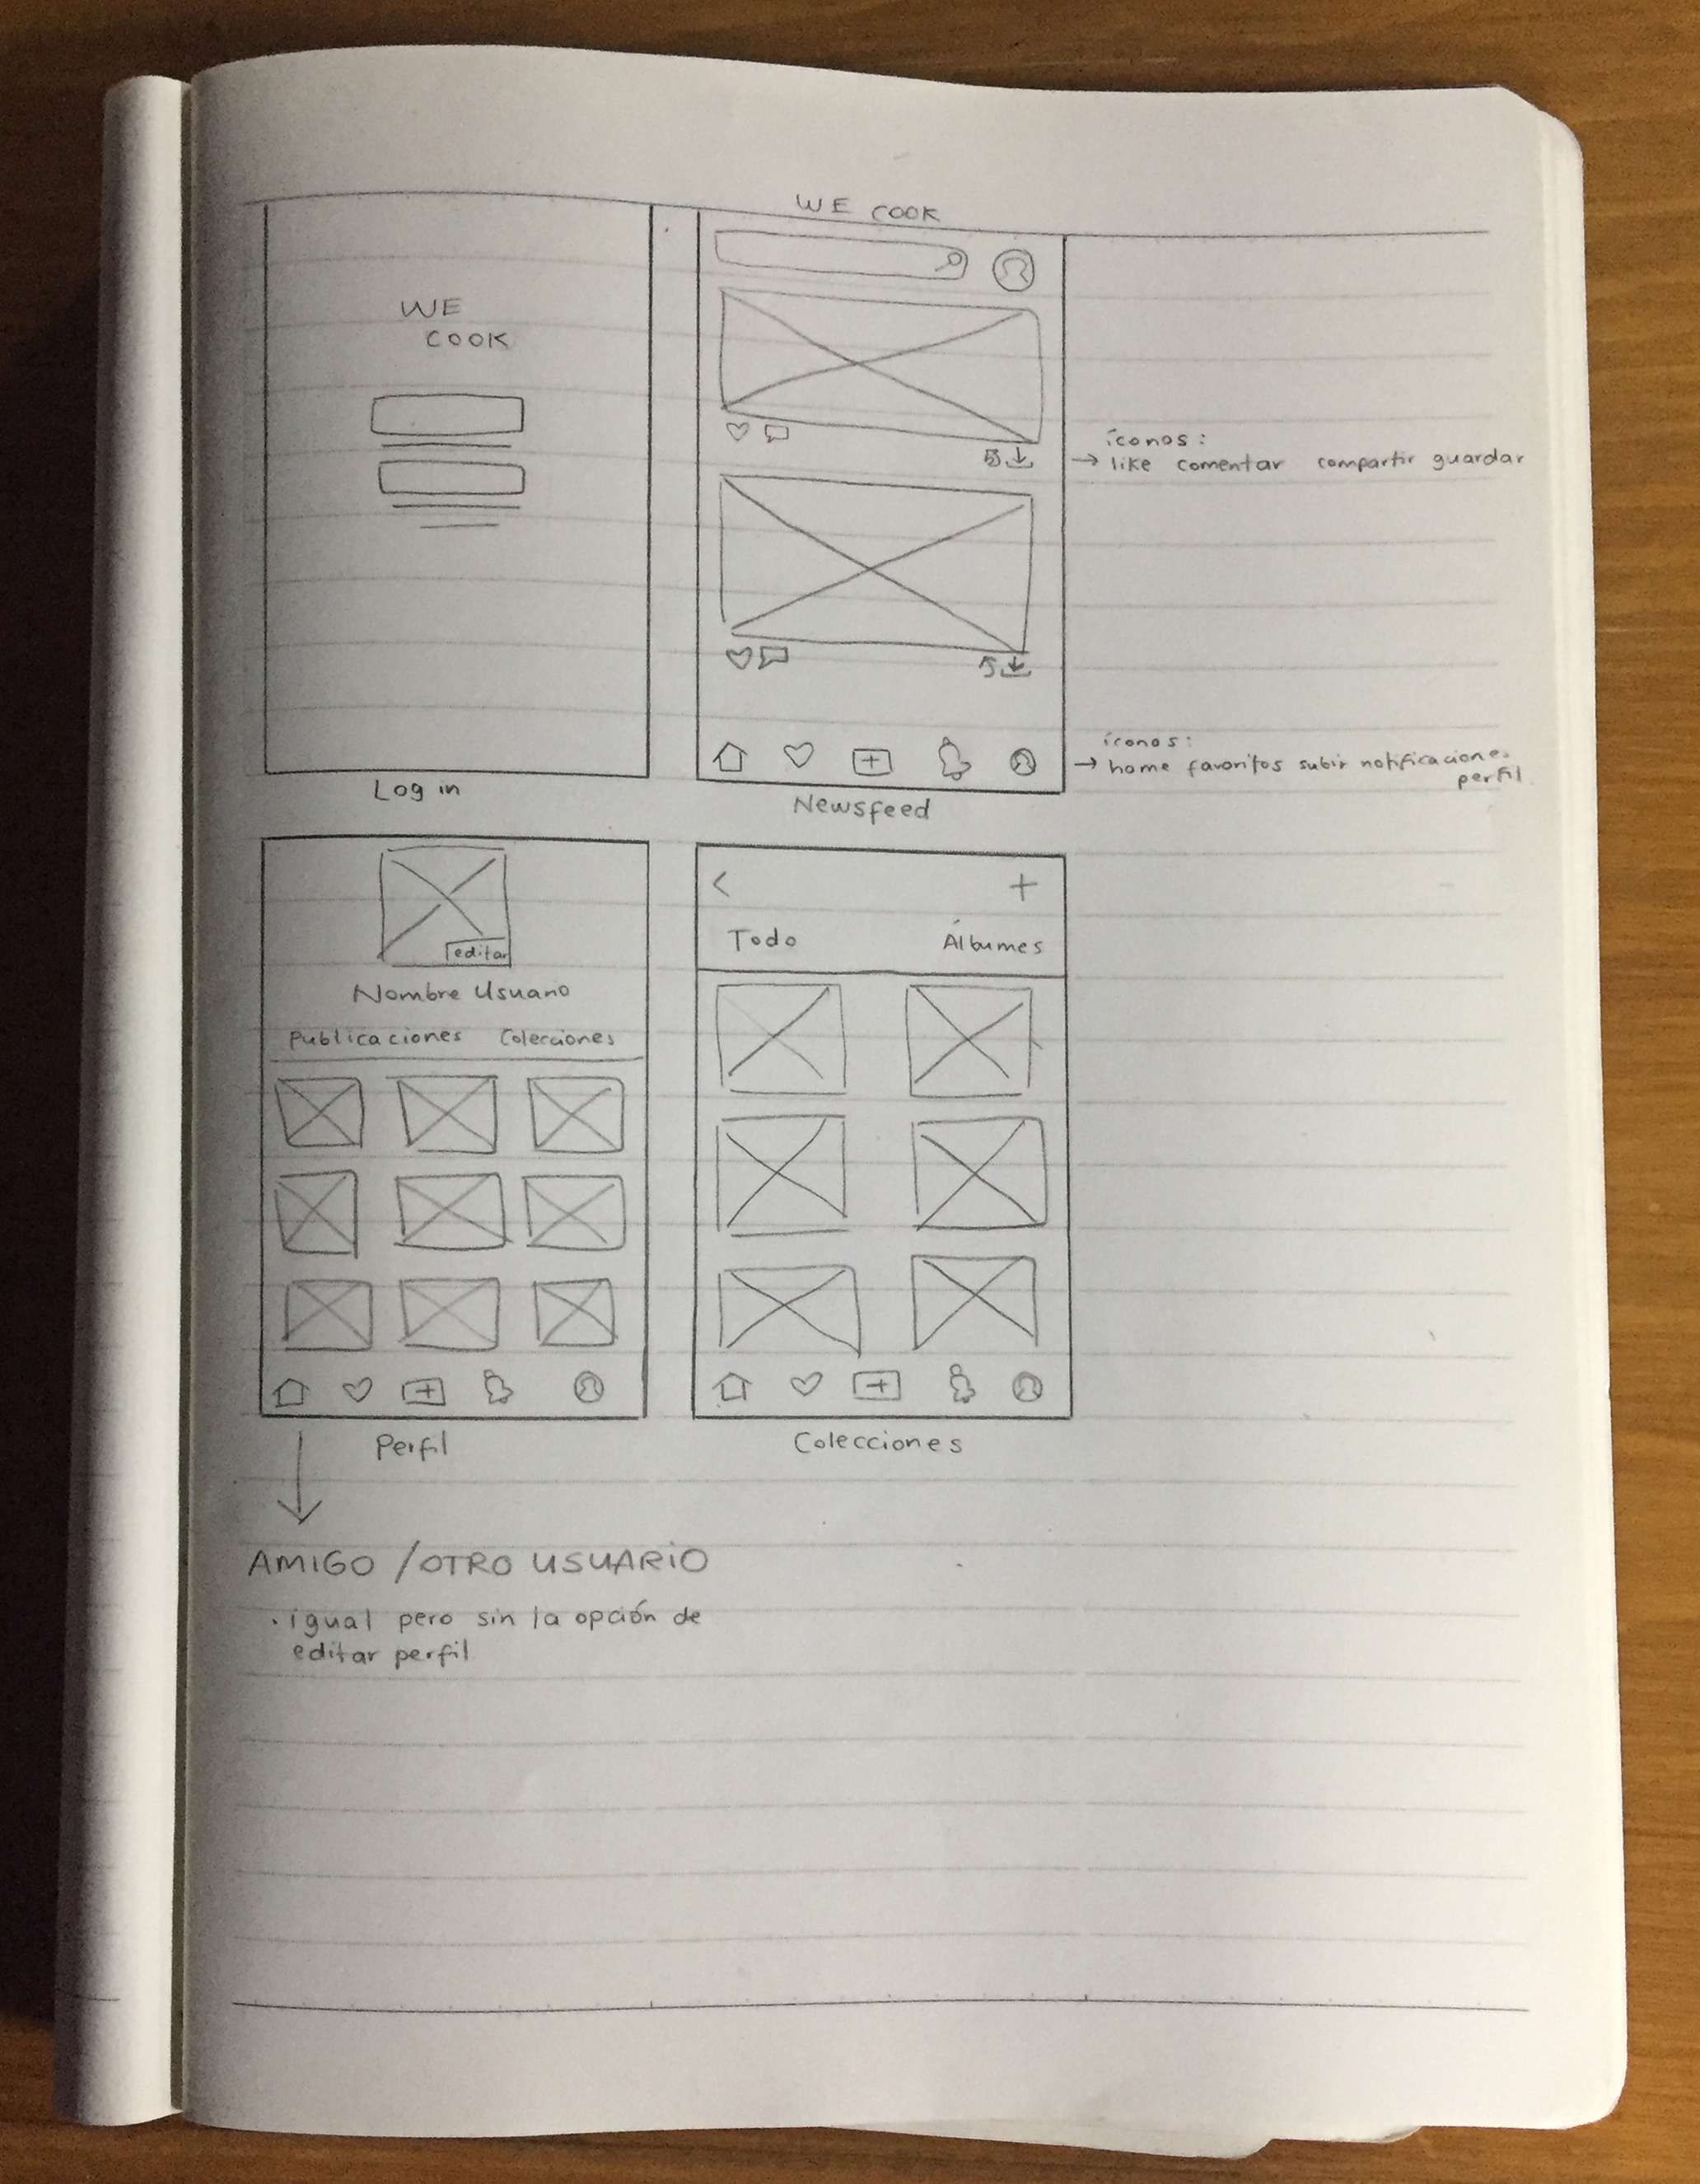 WE COOK
WE
COOK
íconos:
→ like comentar compartir guardar
íconos:
→ home favoritos subir notificaciones
perfil
Log in
Newsfeed
editar
Nombre Usuario
Publicaciones Colecciones
< +
Todo Álbumes
Perfil
Colecciones
AMIGO / OTRO USUARIO
· igual pero sin la opción de
editar perfil